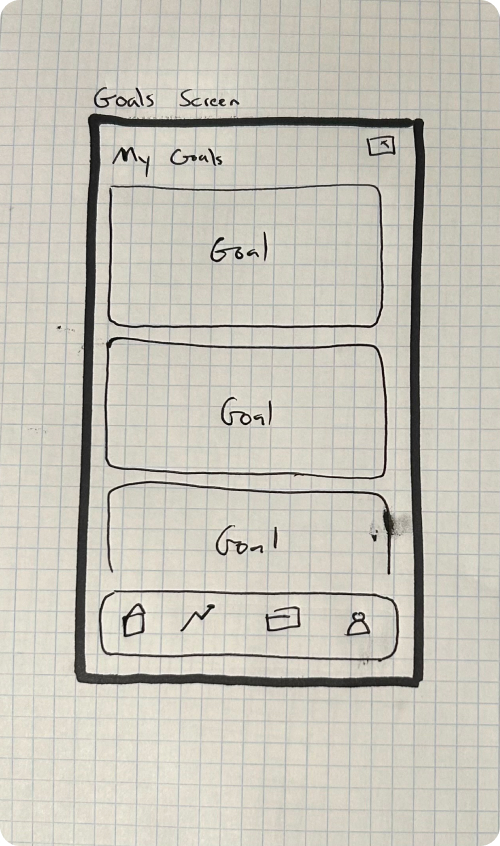 Goals Screen
My Goals
Goal
Goal
Goal